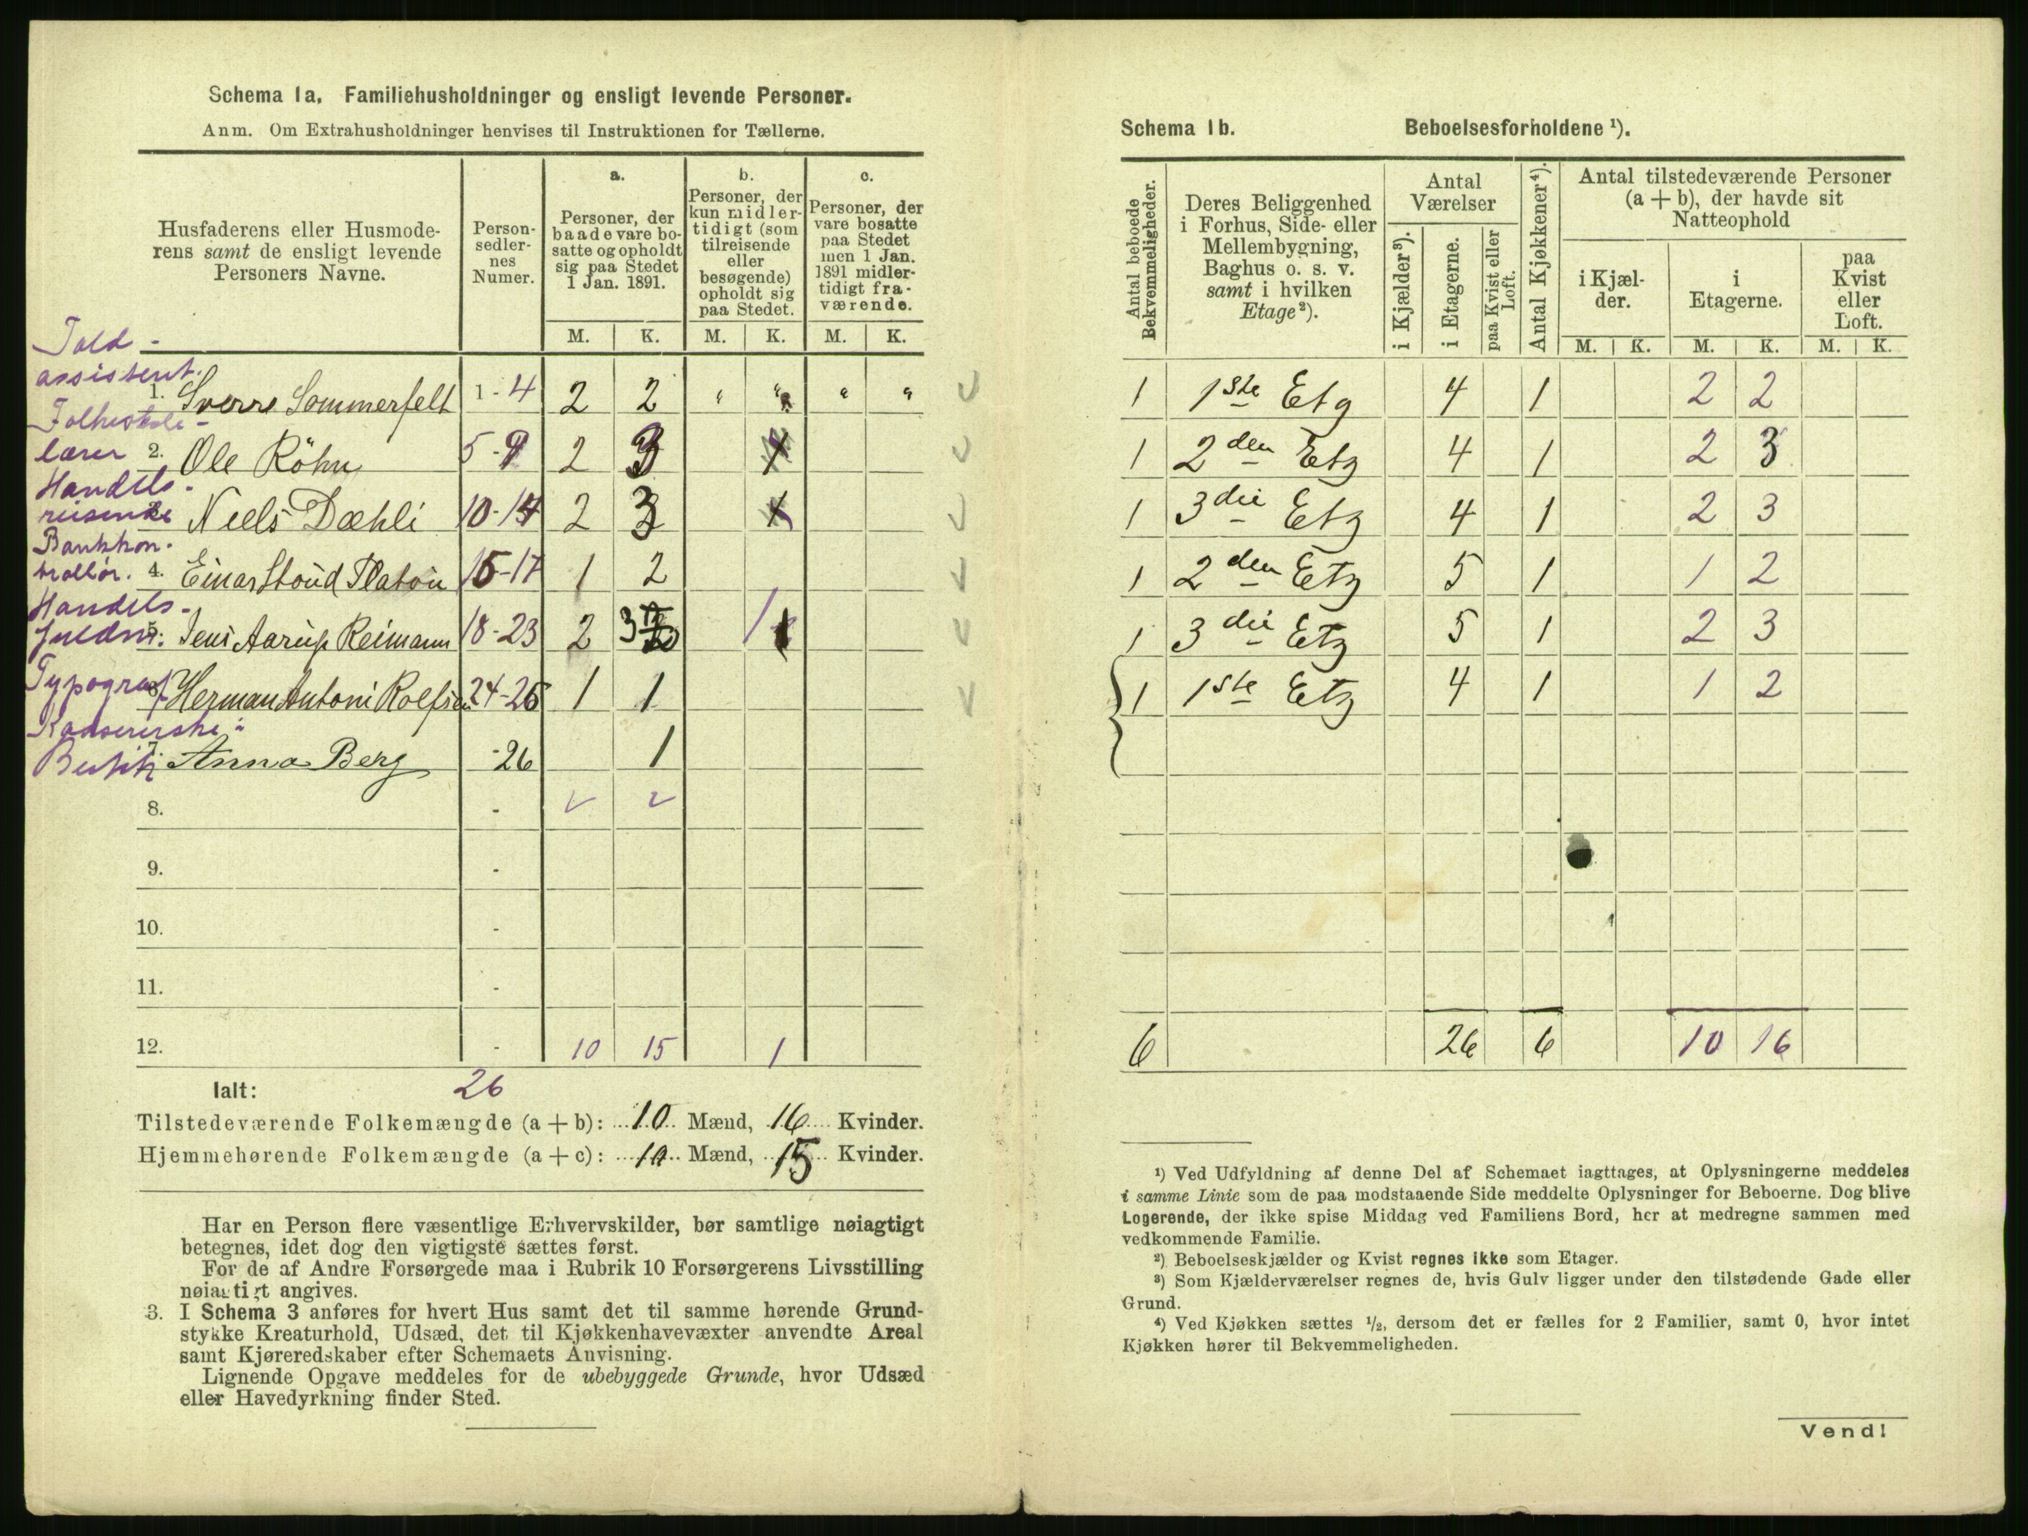 Schema 1a. Familiehusholdninger og ensligt levende Personer.
Anm. Om Extrahusholdninger henvises til Instruktionen for Tællerne.
Husfaderens eller Husmode-
rens samt de ensligt levende
Personers Navne.
Person-
sedler-
nes
Numer.
a.
Personer, der
baade vare bo-
satte og opholdt
sig paa Stedet
1 Jan. 1891.
b.
Personer, der
kun midler-
tidigt (som
tilreisende
eller
besøgende)
opholdt sig
paa Stedet.
c.
Personer, der
vare bosatte
paa Stedet
men 1 Jan.
1891 midler-
tidigt fra-
værende.
M. K. M. K. M. K.
Told-
assistent.
1. Sverre Sommerfelt 1-4 2 2 " " " "
lærer 2. Ole Röhn 5-9 2 3
Handels-
reisende 3. Niels Dæhli 10-14 2 3
Bankkon-
trollør. 4. Einar Stoud Platou 15-17 1 2
Handels-
fuldm: 5. Jens Aarup Reimann 18-23 2 3 1
Typograf 6. Herman Antoni Rolfsen 24-25 1 1
7. Anna Berg -26 1
8. -
9. -
10. -
11. -
12. - 10 15 1
Ialt: 26
Tilstedeværende Folkemængde (a + b): 10 Mænd, 16 Kvinder.
Hjemmehørende Folkemængde (a + c): 10 Mænd, 15 Kvinder.
Har en Person flere væsentlige Erhvervskilder, bør samtlige nøiagtigt
betegnes, idet dog den vigtigste sættes først.
For de af Andre Forsørgede maa i Rubrik 10 Forsørgerens Livsstilling
nøiagtigt angives.
3. I Schema 3 anføres for hvert Hus samt det til samme hørende Grund-
stykke Kreaturhold, Udsæd, det til Kjøkkenhavevæxter anvendte Areal
samt Kjøreredskaber efter Schemaets Anvisning.
Lignende Opgave meddeles for de ubebyggede Grunde, hvor Udsæd
eller Havedyrkning finder Sted.
Schema 1b. Beboelsesforholdene ¹).
Antal beboede
Bekvemmeligheder.
Deres Beliggenhed
i Forhus, Side- eller
Mellembygning,
Baghus o. s. v.
samt i hvilken
Etage ²).
Antal
Værelser
i Kjælder ³).
i Etagerne.
paa Kvist eller
Loft.
Antal Kjøkkener ⁴).
Antal tilstedeværende Personer
(a + b), der havde sit
Natteophold
i Kjæl-
der.
i
Etagerne.
paa
Kvist
eller
Loft.
M. K. M. K. M. K.
1 1ste Etg 4 1 2 2
1 2den Etg 4 1 2 3
1 3die Etg 4 1 2 3
1 2den Etg 5 1 1 2
1 3die Etg 5 1 2 3
1 1ste Etg 4 1 1 2
6 26 6 10 16
¹) Ved Udfyldning af denne Del af Schemaet iagttages, at Oplysningerne meddeles
i samme Linie som de paa modstaaende Side meddelte Oplysninger for Beboerne. Dog blive
Logerende, der ikke spise Middag ved Familiens Bord, her at medregne sammen med
vedkommende Familie.
²) Beboelseskjælder og Kvist regnes ikke som Etager.
³) Som Kjælderværelser regnes de, hvis Gulv ligger under den tilstødende Gade eller
Grund.
⁴) Ved Kjøkken sættes ½, dersom det er fælles for 2 Familier, samt 0, hvor intet
Kjøkken hører til Bekvemmeligheden.
Vend!